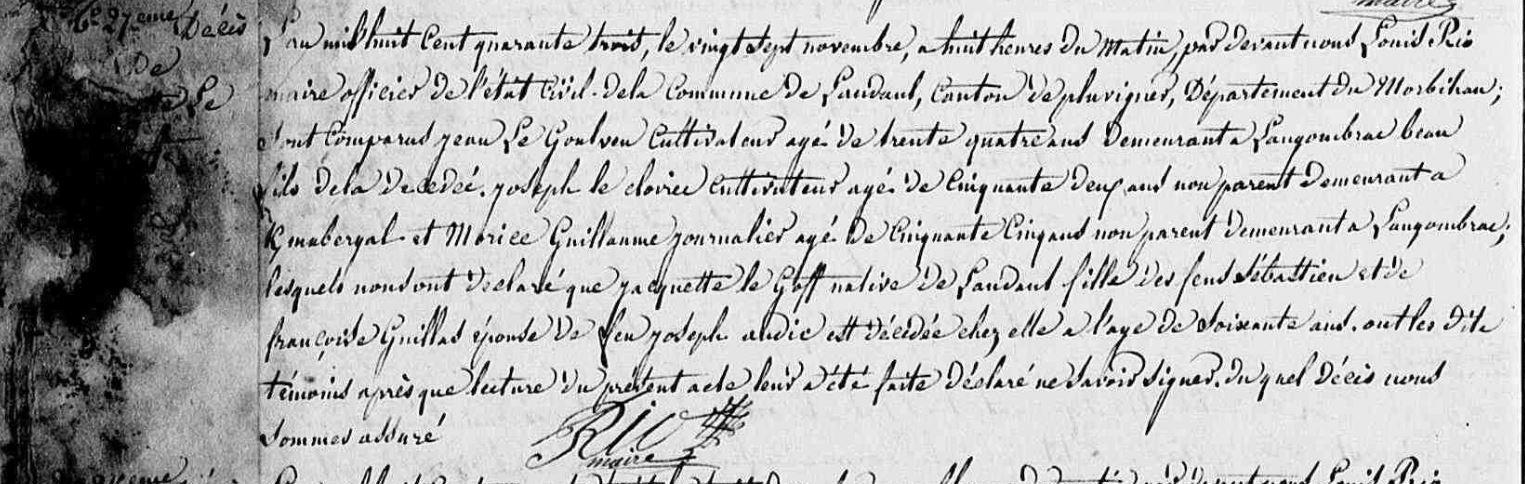 maire
27.eme Décès
de
Le
L'an mil huit Cent quarante trois, le vingt sept novembre, a huit heures du Matin, par devant nous Louis Rio
maire officier de l'état Civil dela Commune de Landaul, Canton de pluvigner, Département du Morbihan;
sont Comparus jean Le Goulven Cultivateur agé de trente quatre ans demeurant a Langombrac beau
fils dela decedée. joseph le clovirec Cultivateur agé de Cinquante deux ans non parent demeurant a
Kmabergal et Morice Guillaume journalier agé de Cinquante Cinq ans non parent demeurant a Langombrac;
lesquels nous ont declaré que jacquette le Goff native de Landaul fille des feus Sébastien et de
françoise Guillas épouse de feu joseph audic est décédée chez elle a l'age de Soixante ans. ont les dits
témoins après que lecture du present acte leur a été faite déclaré ne Savoir Signer. du quel Décès nous
Sommes assuré
RIO
maire